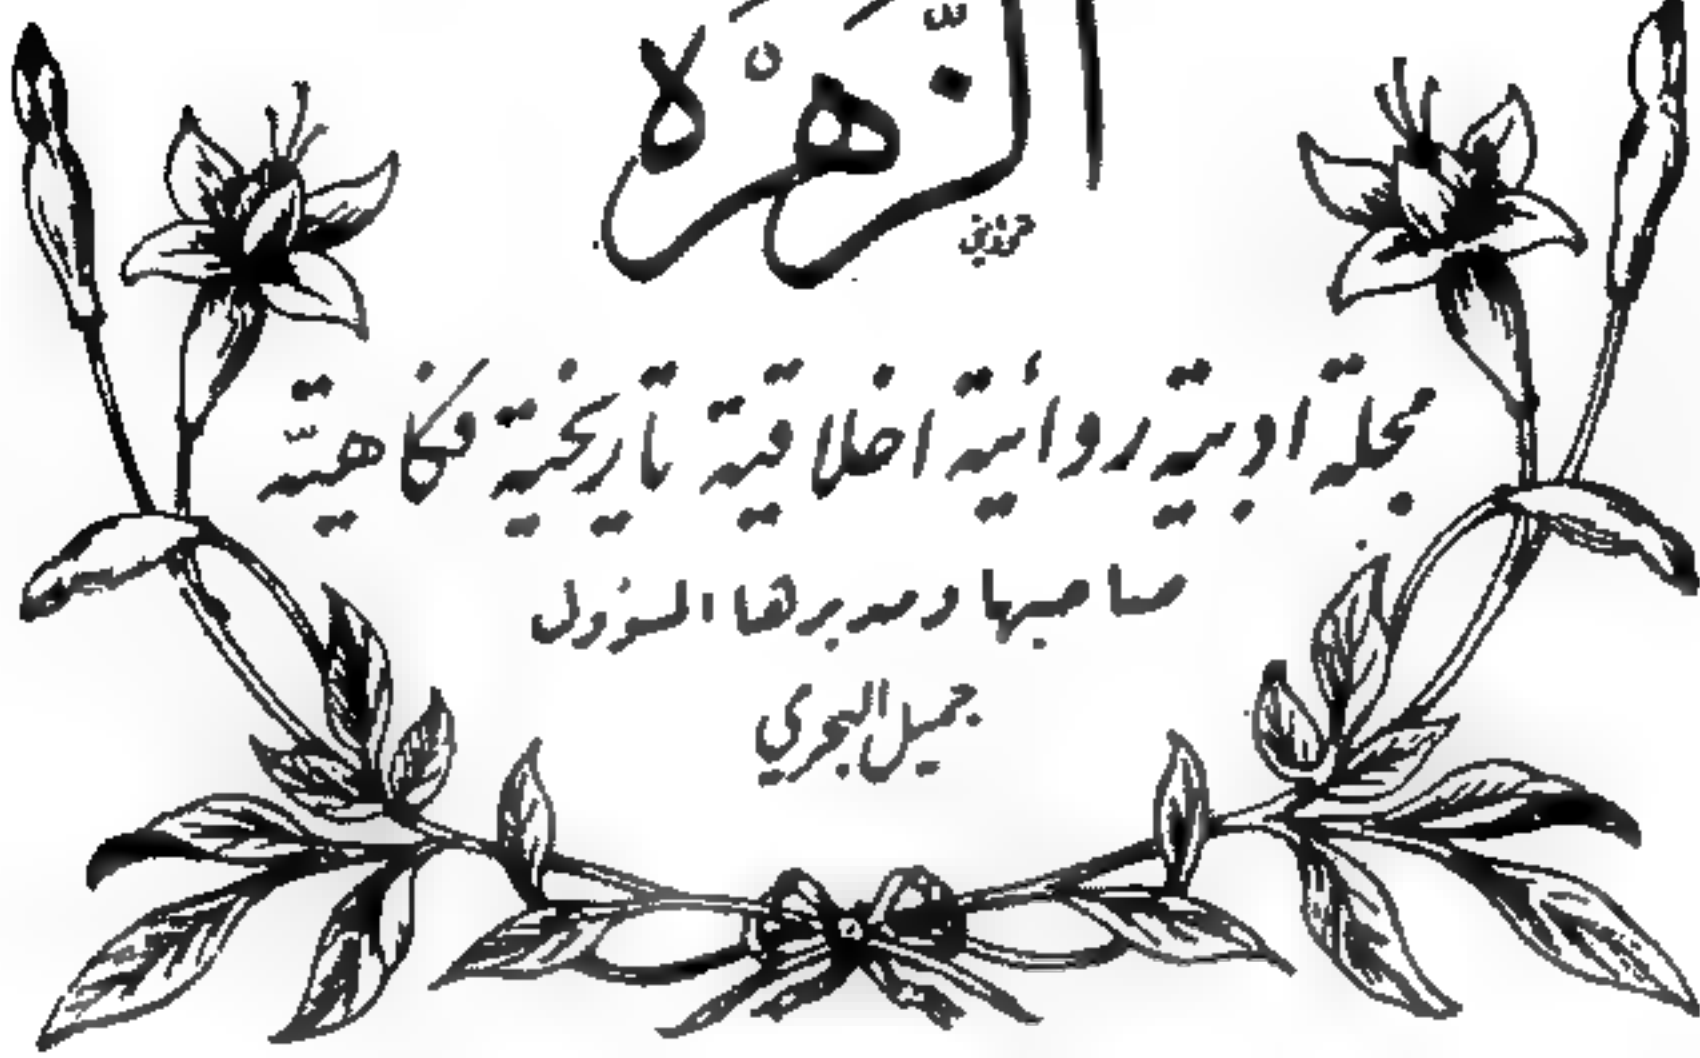 الزَّهَرَه
مجلة ادبية روائية اخلاقية تاريخية فكاهيّة
صاحبها ومديرها المسؤول
جميل البحري